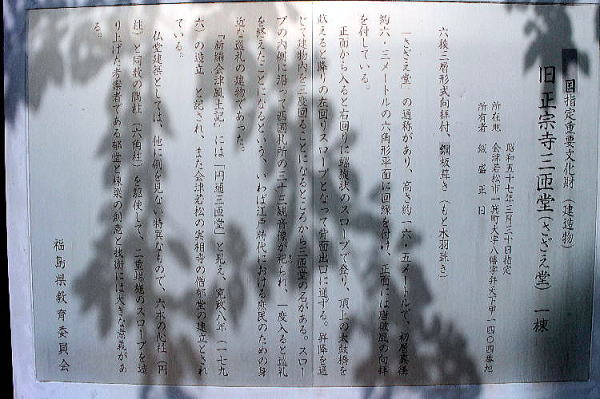 国指定重要文化財（建造物）
旧正宗寺三匝堂（さざえ堂）　一棟
昭和五十七年三月三十日指定
所在地　会津若松市一箕町大字八幡字弁天下甲一四〇四番地
所有者　飯盛正日
六稜三層形式向拝付、銅板葺き（もと木羽葺き）
「さざえ堂」の通称があり、高さ約一六・五メートルで、初層直径
約六・三メートルの六角形平面に回縁を付け、正面には唐破風の向拝
を付している。
正面から入ると右回りに螺旋状のスロープで登り、頂上の太鼓橋を
越えると降りの左回りスロープとなって背面出口に通ずる。昇降を通
じて建物内を三度回ることになるところから三匝堂の名がある。スロー
プの内側に沿って西国札所の三十三観音像が祀られ、一度入ると巡礼
を終えたことになるという、いわば江戸時代における庶民のための身
近な巡礼の建物であった。
『新編会津風土記』には「円通三匝堂」と見え、寛政八年（一七九
六）の造立　と記され、また会津若松の実相寺の僧郁堂の建立とされ
ている。
仏堂建築としては、他に例を見ない特異なもので、六本の心柱（円
柱）と同数の隅柱（六角柱）を駆使して、二重螺旋のスロープを造
り上げた考案者である郁堂と棟梁の創意と技術には大きな意義があ
る。
福島県教育委員会